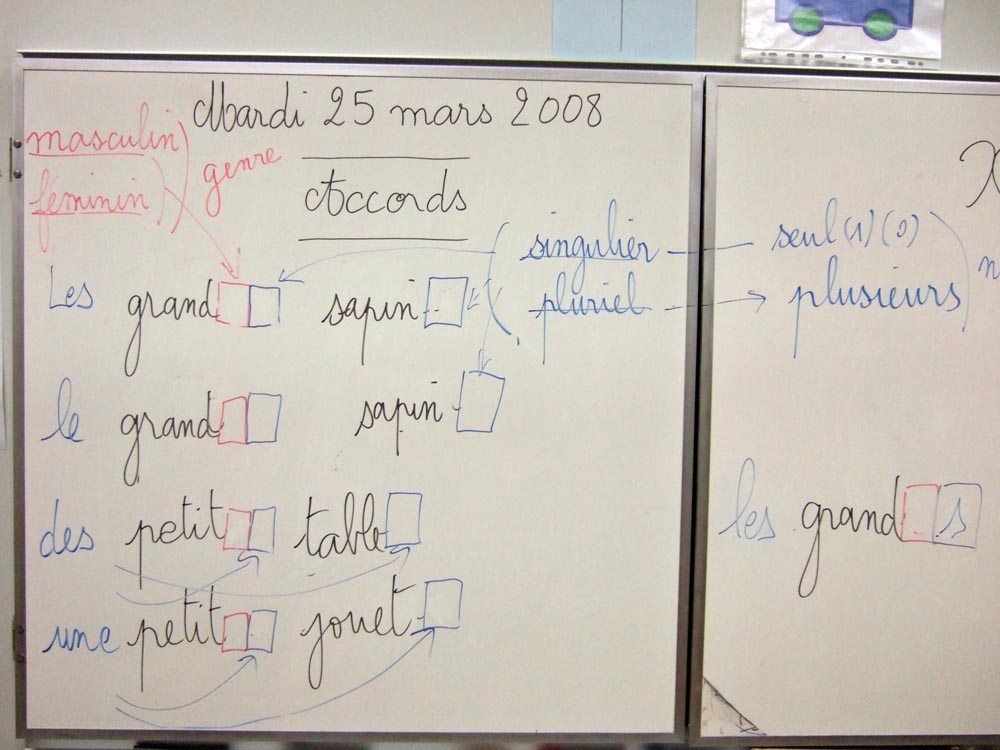 Mardi 25 mars 2008
masculin
féminin
genre
Accords
singulier
pluriel
seul (1) (0)
plusieurs
Les grand sapin
le grand sapin
des petit table
une petit jouet
les grand s